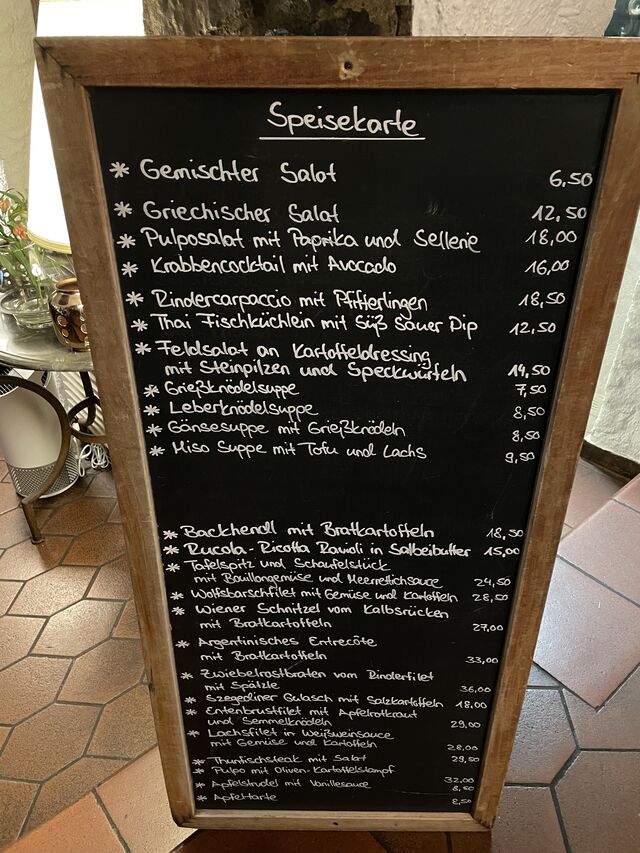 Speisekarte
* Gemischter Salat 6,50
* Griechischer Salat 12,50
* Pulposalat mit Paprika und Sellerie 18,00
* Krabbencocktail mit Avocado 16,00
* Rindercarpaccio mit Pfifferlingen 18,50
* Thai Fischküchlein mit Süß Sauer Dip 12,50
* Feldsalat an Kartoffeldressing
mit Steinpilzen und Speckwürfeln 14,50
* Grießknödelsuppe 7,50
* Leberknödelsuppe 8,50
* Gänsesuppe mit Grießknödeln 8,50
* Miso Suppe mit Tofu und Lachs 9,50
* Backhendl mit Bratkartoffeln 18,50
* Rucola-Ricotta Ravioli in Salbeibutter 15,00
* Tafelspitz und Schaufelstück
mit Bouillongemüse und Meerrettichsauce 24,50
* Wolfsbarschfilet mit Gemüse und Kartoffeln 28,50
* Wiener Schnitzel vom Kalbsrücken
mit Bratkartoffeln 27,00
* Argentinisches Entrecôte
mit Bratkartoffeln 33,00
* Zwiebelrostbraten vom Rinderfilet
mit Spätzle 36,00
* Szegediner Gulasch mit Salzkartoffeln 18,00
* Entenbrustfilet mit Apfelrotkraut
und Semmelknödeln 29,00
* Lachsfilet in Weißweinsauce
mit Gemüse und Kartoffeln 28,00
* Thunfischsteak mit Salat 29,50
* Pulpo mit Oliven-Kartoffelstampf 32,00
* Apfelstrudel mit Vanillesauce 8,50
* Apfeltarte 8,50